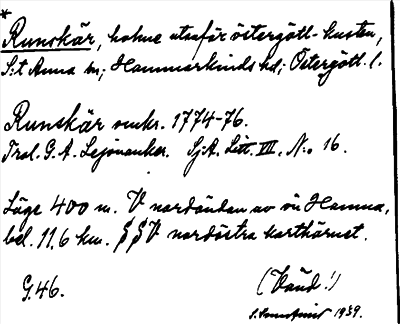 *
Runskär, holme utanför östergötl-kusten,
S:t Anna sn; Hammarkinds hd; Östergötl. l.
Runskär omkr. 1774-76.
Frol. G. A. Lejonanker. SjA. Litt. VII, N:o 16.
Läge 400 m. V nordändan av ön Hamna,
bel. 11,6 km. SSV nordöstra kartskärnet.
G.46.
(Vänd!)
1939.